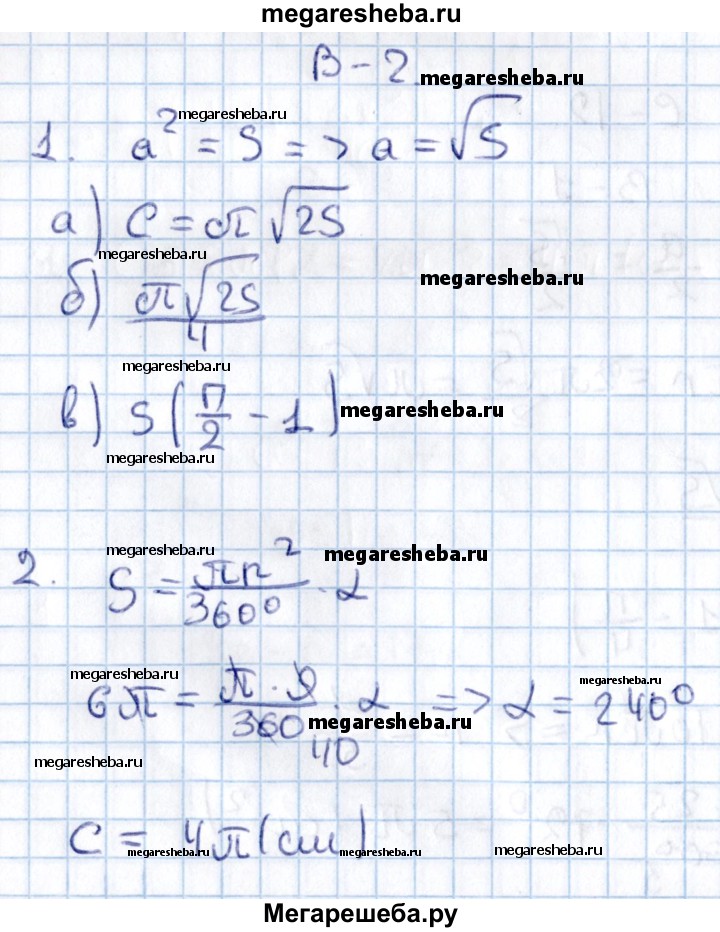 megaresheba.ru
В-2 megaresheba.ru
megaresheba.ru
1. a² = S => a = √S
а) C = π √2S
megaresheba.ru
megaresheba.ru
б) π√2S / 4
megaresheba.ru
в) S(π/2 - 1) megaresheba.ru
megaresheba.ru
megaresheba.ru megaresheba.ru
2. S = πr²/360° · α
megaresheba.ru megaresheba.ru
6π = π · 9/360 · α => α = 240°
megaresheba.ru
40
megaresheba.ru
C = 4π (см)
megaresheba.ru megaresheba.ru megaresheba.ru
Мегарешеба.ру